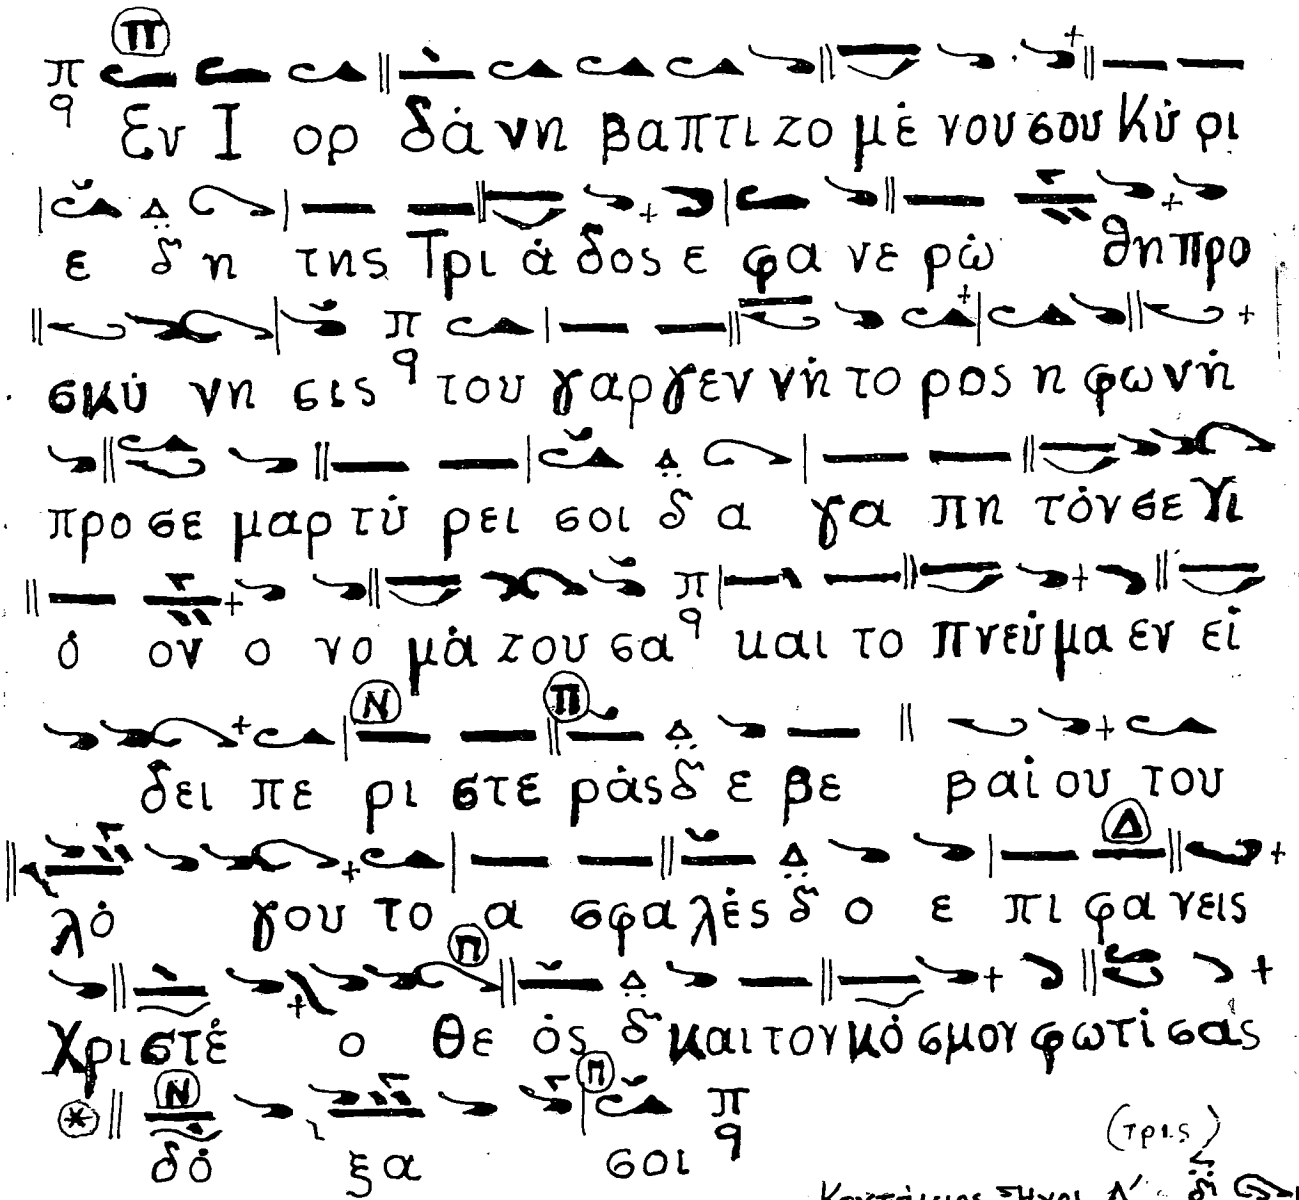 Εν Ι ορ δά νη βα πτι ζο μέ νου σου Κύ ρι
ε δ η της Τρι ά δος ε φα νε ρώ θη προ
σκύ νη σις του γαρ Γεν νή το ρος η φω νή
προ σε μαρ τύ ρει σοι δ α γα πη τόν σε Υι
ό ον ο νο μά ζου σα και το πνεύ μα εν εί
δει πε ρι στε ράς δ ε βε βαί ου του
λό γου το α σφα λές δ ο ε πι φα νεις
Χρι στέ ο θε ός δ και τον κό σμον φω τί σας
δό ξα σοι
(τρις)